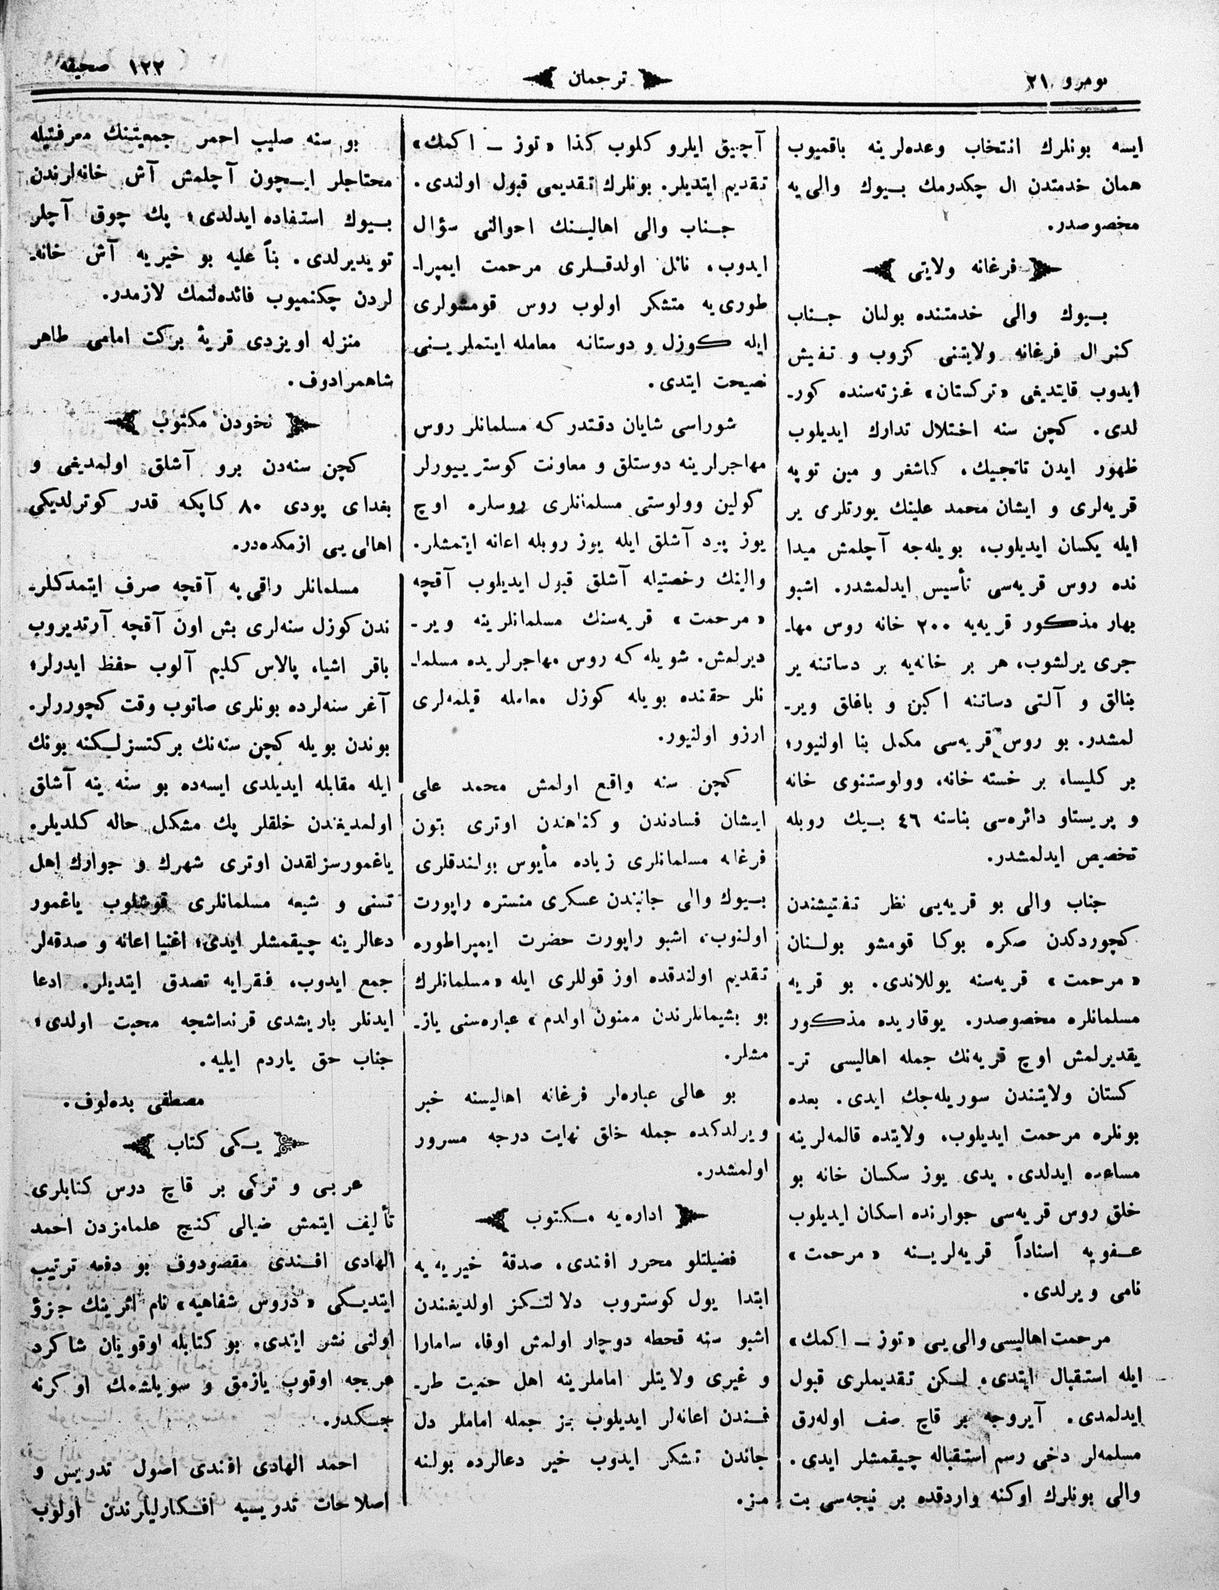 نومرو ٢١
ترجمان
١٢٢ صحيفه
ايسه بونلرك انتخاب وعده‌لرينه باقميوب
همان خدمتدن ال چكدرمك بيوك والى‌يه
مخصوصدر.
فرغانه ولايتى
بيوك والى خدمتنده بولنان جناب
كنرال فرغانه ولايتنى كزوب و تفيش
ايدوب قايتديغى «تركستان» غزته‌سنده كور-
لدى. كچن سنه اختلال تدارك ايديلوب
ظهور ايدن تاتجيك، كاشغر و مين توپه
قريه‌لرى و ايشان محمد علينك يورتلرى ير
ايله يكسان ايديلوب، بويله‌جه آچلمش ميدا
نده روس قريه‌سى تأسيس ايدلمشدر. اشبو
بهار مذكور قريه‌يه ٢٠٠ خانه روس مها-
جرى يرلشوب، هر بر خانه‌يه بر دساتنه ير
بنالق و آلتى دساتنه اكين و باغلق وير-
لمشدر. بو روس قريه‌سى مكمل بنا اولنيور؛
بر كليسا، بر خسته خانه، وولوستنوى خانه
و پريستاو دائره‌سى بناسنه ٤٦ بيك روبله
تخصيص ايدلمشدر.
جناب والى بو قريه‌يى نظر تفتيشندن
كچوردكدن صكره بوكا قومشو بولنان
«مرحمت» قريه‌سنه يوللاندى. بو قريه
مسلمانلره مخصوصدر. يوقاريده مذكور
يقديرلمش اوچ قريه‌نك جمله اهاليسى تر-
كستان ولايتندن سوريله‌جك ايدى. بعده
بونلره مرحمت ايديلوب، ولايتده قالمه‌لرينه
مساعده ايدلدى. يدى يوز سكسان خانه بو
خلق روس قريه‌سى جوارنده اسكان ايديلوب
عفويه اسناداً قريه‌لرينه «مرحمت»
نامى ويرلدى.
مرحمت اهاليسى والى‌يى «توز ـ اكمك»
ايله استقبال ايتدى. لكن تقديملرى قبول
ايدلمدى. آيروجه بر قاچ صف اوله‌رق
مسلمه‌لر دخى رسم استقباله چيقمشلر ايدى.
والى بونلرك اوكنه واردقده بر نيجه‌سى بت
آچيق ايلرو كلوب كذا «توز ـ اكمك»
تقديم ايتديلر. بونلرك تقديمى قبول اولندى.
جناب والى اهالينك احوالنى سؤال
ايدوب، نائل اولدقلرى مرحمت ايمپرا-
طورى‌يه متشكر اولوب روس قومشولرى
ايله كوزل و دوستانه معامله ايتملرينى
نصيحت ايتدى.
شوراسى شايان دقتدر كه مسلمانلر روس
مهاجرلرينه دوستلق و معاونت كوسترييورلر
كولين وولوستى مسلمانلرى روسلره اوچ
يوز پود آشلق ايله يوز روبله اعانه ايتمشلر.
والينك رخصتيله آشلق قبول ايديلوب آقچه
«مرحمت» قريه‌سنك مسلمانلرينه وير-
ديرلمش. شويله كه روس مهاجرلريده مسلما-
نلر حقنده بويله كوزل معامله قيلمه‌لرى
ارزو اولنيور.
كچن سنه واقع اولمش محمد على
ايشان فسادندن و كناهندن اوترى بتون
فرغانه مسلمانلرى زياده مأيوس بولندقلرى
بيوك والى جانبندن عسكرى منستره راپورت
اولنوب، اشبو راپورت حضرت ايمپراطوره
تقديم اولندقده اوز قوللرى ايله «مسلمانلرك
بو بشيمانلرندن ممنون اولدم» عباره‌سنى ياز-
مشلر.
بو عالى عباره‌لر فرغانه اهاليسنه خبر
ويرلدكده جمله خلق نهايت درجه مسرور
اولمشدر.
اداره‌يه مكتوب
فضيلتلو محرر افندى. صدقۀ خيريه‌يه
ابتدا يول كوستروب دلالتكز اولديغندن
اشبو سنه قحطه دوچار اولمش اوفا، سامارا
و غيرى ولايتلر اماملرينه اهل حميت طر-
فندن اعانه‌لر ايديلوب بز جمله اماملر دل
جاندن تشكر ايدوب خير دعالرده بولنه
مز.
بو سنه صليب احمر جمعيتنك معرفتيله
محتاجلر ايچون آچلمش آش خانه‌لرندن
بيوك استفاده ايدلدى؛ پك چوق آچلر
تويديرلدى. بناً عليه بو خيريه آش خانه-
لردن چكنميوب فائده‌لنمك لازمدر.
منزله اويزدى قريۀ بركت امامى طاهر
شاهمرادوف.
نخودن مكتوب
كچن سنه‌دن برو آشلق اولمديغى و
بغداى پودى ٨٠ كاپكه قدر كوترلديكى
اهالى‌يى ازمكده‌در.
مسلمانلر راقى‌يه آقچه صرف ايتمدكلر-
ندن كوزل سنه‌لرى بش اون آقچه آرتديروب
باقر اشيا، پالاس كليم آلوب حفظ ايدرلر؛
آغر سنه‌لرده بونلرى صاتوب وقت كچوررلر.
بوندن بويله كچن سنه‌نك بركتسزلكنه بونك
ايله مقابله ايديلدى ايسه‌ده بو سنه ينه آشلق
اولمديغندن خلقلر پك مشكل حاله كلديلر.
ياغمورسزلقدن اوترى شهرك و جوارك اهل
تسنى و شيعه مسلمانلرى قوشلوب ياغمور
دعالرينه چيقمشلر ايدى؛ اغنيا اعانه و صدقه‌لر
جمع ايدوب، فقرايه تصدق ايتديلر. ادعا
ايدنلر باريشدى قرنداشجه محبت اولدى؛
جناب حق ياردم ايليه.
مصطفى بده‌لوف.
يكى كتاب
عربى و تركى بر قاچ درس كتابلرى
تأليف ايتمش ضيالى كنج علمامزدن احمد
الهادى افندى مقصودوف بو دفعه ترتيب
ايتديكى «دروس شفاهيه» نام اثرينك جزؤ
اولنى نشر ايتدى. بو كتابله اوقويان شاكرد
عربجه اوقوب يازمق و سويلشمك اوكرنه
جكدر.
احمد الهادى افندى اصول تدريس و
اصلاحات تدريسيه افكارليلرندن اولوب